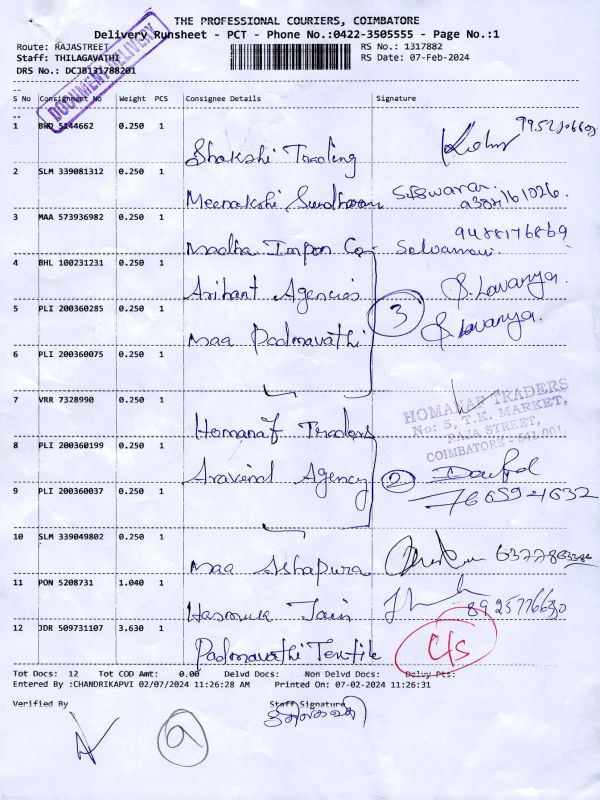 THE PROFESSIONAL COURIERS, COIMBATORE
Delivery Runsheet - PCT - Phone No.:0422-3505555 - Page No.:1
Route: RAJASTREET
RS No.: 1317882
Staff: THILAGAVATHI
RS Date: 07-Feb-2024
DRS No.: DCJB131788201
DOCUMENT DELIVERY
S No Consignment No Weight PCS Consignee Details Signature
1 BWD 5144662 0.250 1 Shakshi Trading
2 SLM 339081312 0.250 1 Meenakshi Sundharam 9384161026.
3 MAA 573936982 0.250 1 Madha Impon Co Selvarani 9488176869
4 BHL 100231231 0.250 1 Arihant Agencies S. Lavanya.
5 PLI 200360285 0.250 1 Maa Padmavathi 3 S. Lavanya.
6 PLI 200360075 0.250 1
7 VRR 7328990 0.250 1 Homanaf Traders
HOMANAF TRADERS
No: 5, T.K. MARKET,
RAJA STREET,
COIMBATORE - 641 001.
8 PLI 200360199 0.250 1 Aravind Agency 2
9 PLI 200360037 0.250 1
10 SLM 339049802 0.250 1 Maa Ashapura
11 PON 5208731 1.040 1 Hasmuk Jain
12 JDR 509731107 3.630 1 Padmavathi Textile C/S
Tot Docs: 12 Tot COD Amt: 0.00 Delvd Docs: Non Delvd Docs: Delvy Pts:
Entered By :CHANDRIKAPVI 02/07/2024 11:26:28 AM Printed On: 07-02-2024 11:26:31
Verified By Staff Signature
9